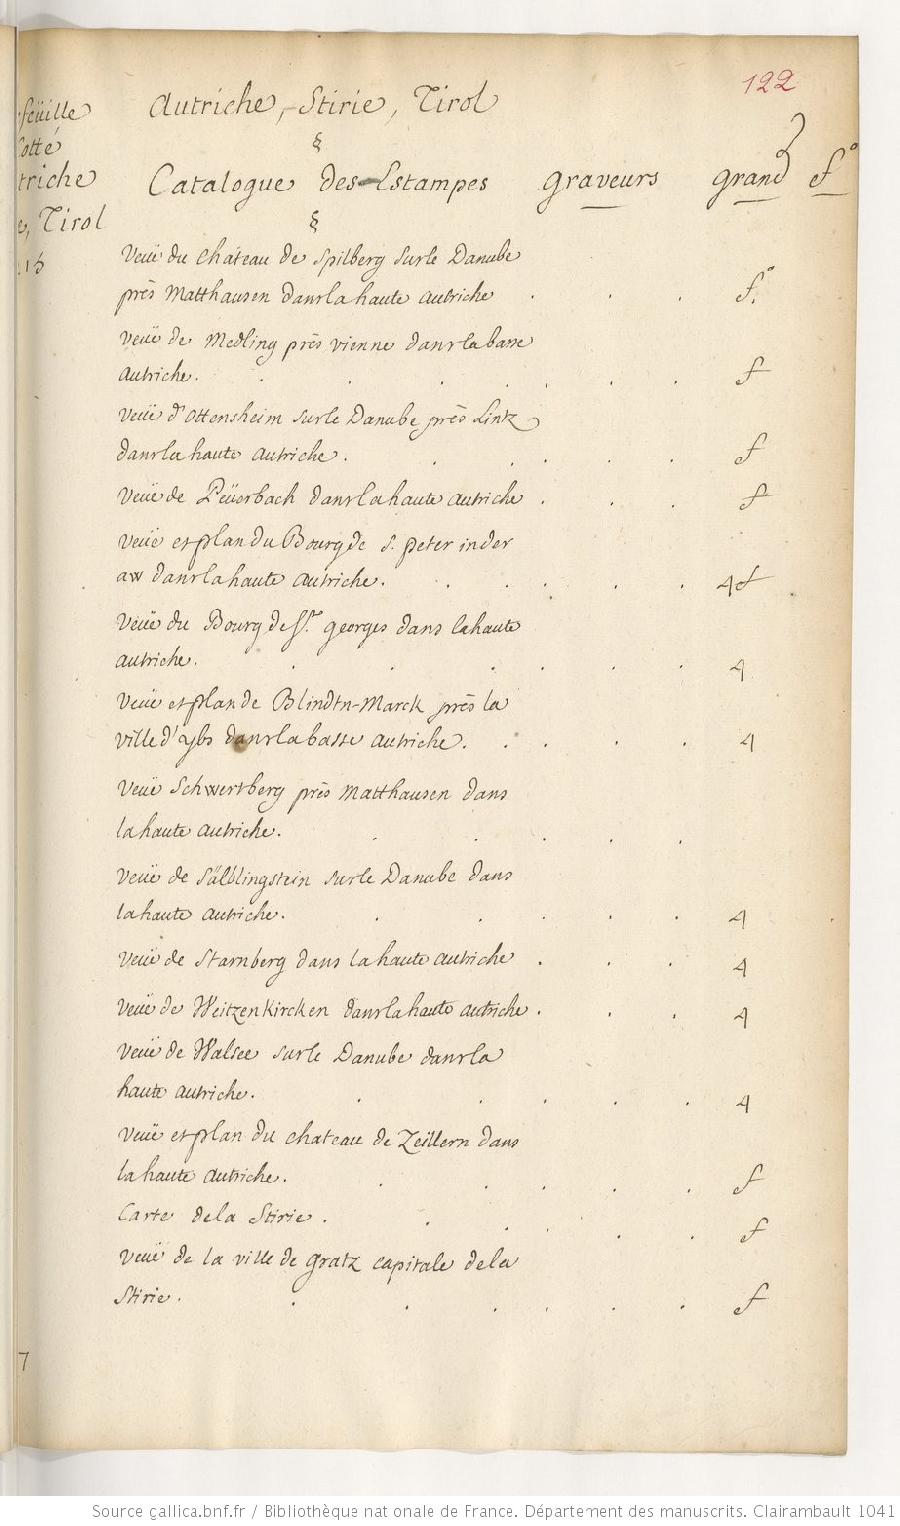 122
Autriche, Stirie, Tirol
feüille
Cotté
triche
e, Tirol
Catalogue des Estampes graveurs grand f°
Veüe du château de Spilberg sur le Danube
près Matthausen dans la haute autriche . . . f°.
Veüe de Medling près vienne dans la basse
autriche. . . . . . . . f
veüe d'ottensheim sur le Danube près Lintz
dans la haute autriche. . . . . . f
veüe de Peüerbach dans la haute autriche . . . f
veüe et plan du Bourg de S. peter in der
aw dans la haute autriche. . . . . . 4 f
Veüe du Bourg de St. georges dans la haute
autriche. . . . . . . 4
Veüe et plan de Blindtn-Marck près la
ville d'ybs dans la basse autriche. . . . . 4
Veüe Schwertberg près Matthausen dans
la haute autriche. . . . . .
veüe de Sälblingstein sur le Danube dans
la haute autriche. . . . . . 4
veüe de Starnberg dans la haute autriche . . . 4
veüe de Weitzenkircken dans la haute autriche . . . 4
veüe de Walsee sur le Danube dans la
haute autriche. . . . . . 4
veüe et plan du chateau de Zeillern dans
la haute autriche. . . . . . f
Carte de la Stirie . . . . . . f
veüe de la ville de gratz capitale de la
Stirie. . . . . . . f
7
Source gallica.bnf.fr / Bibliothèque nationale de France. Département des manuscrits. Clairambault 1041